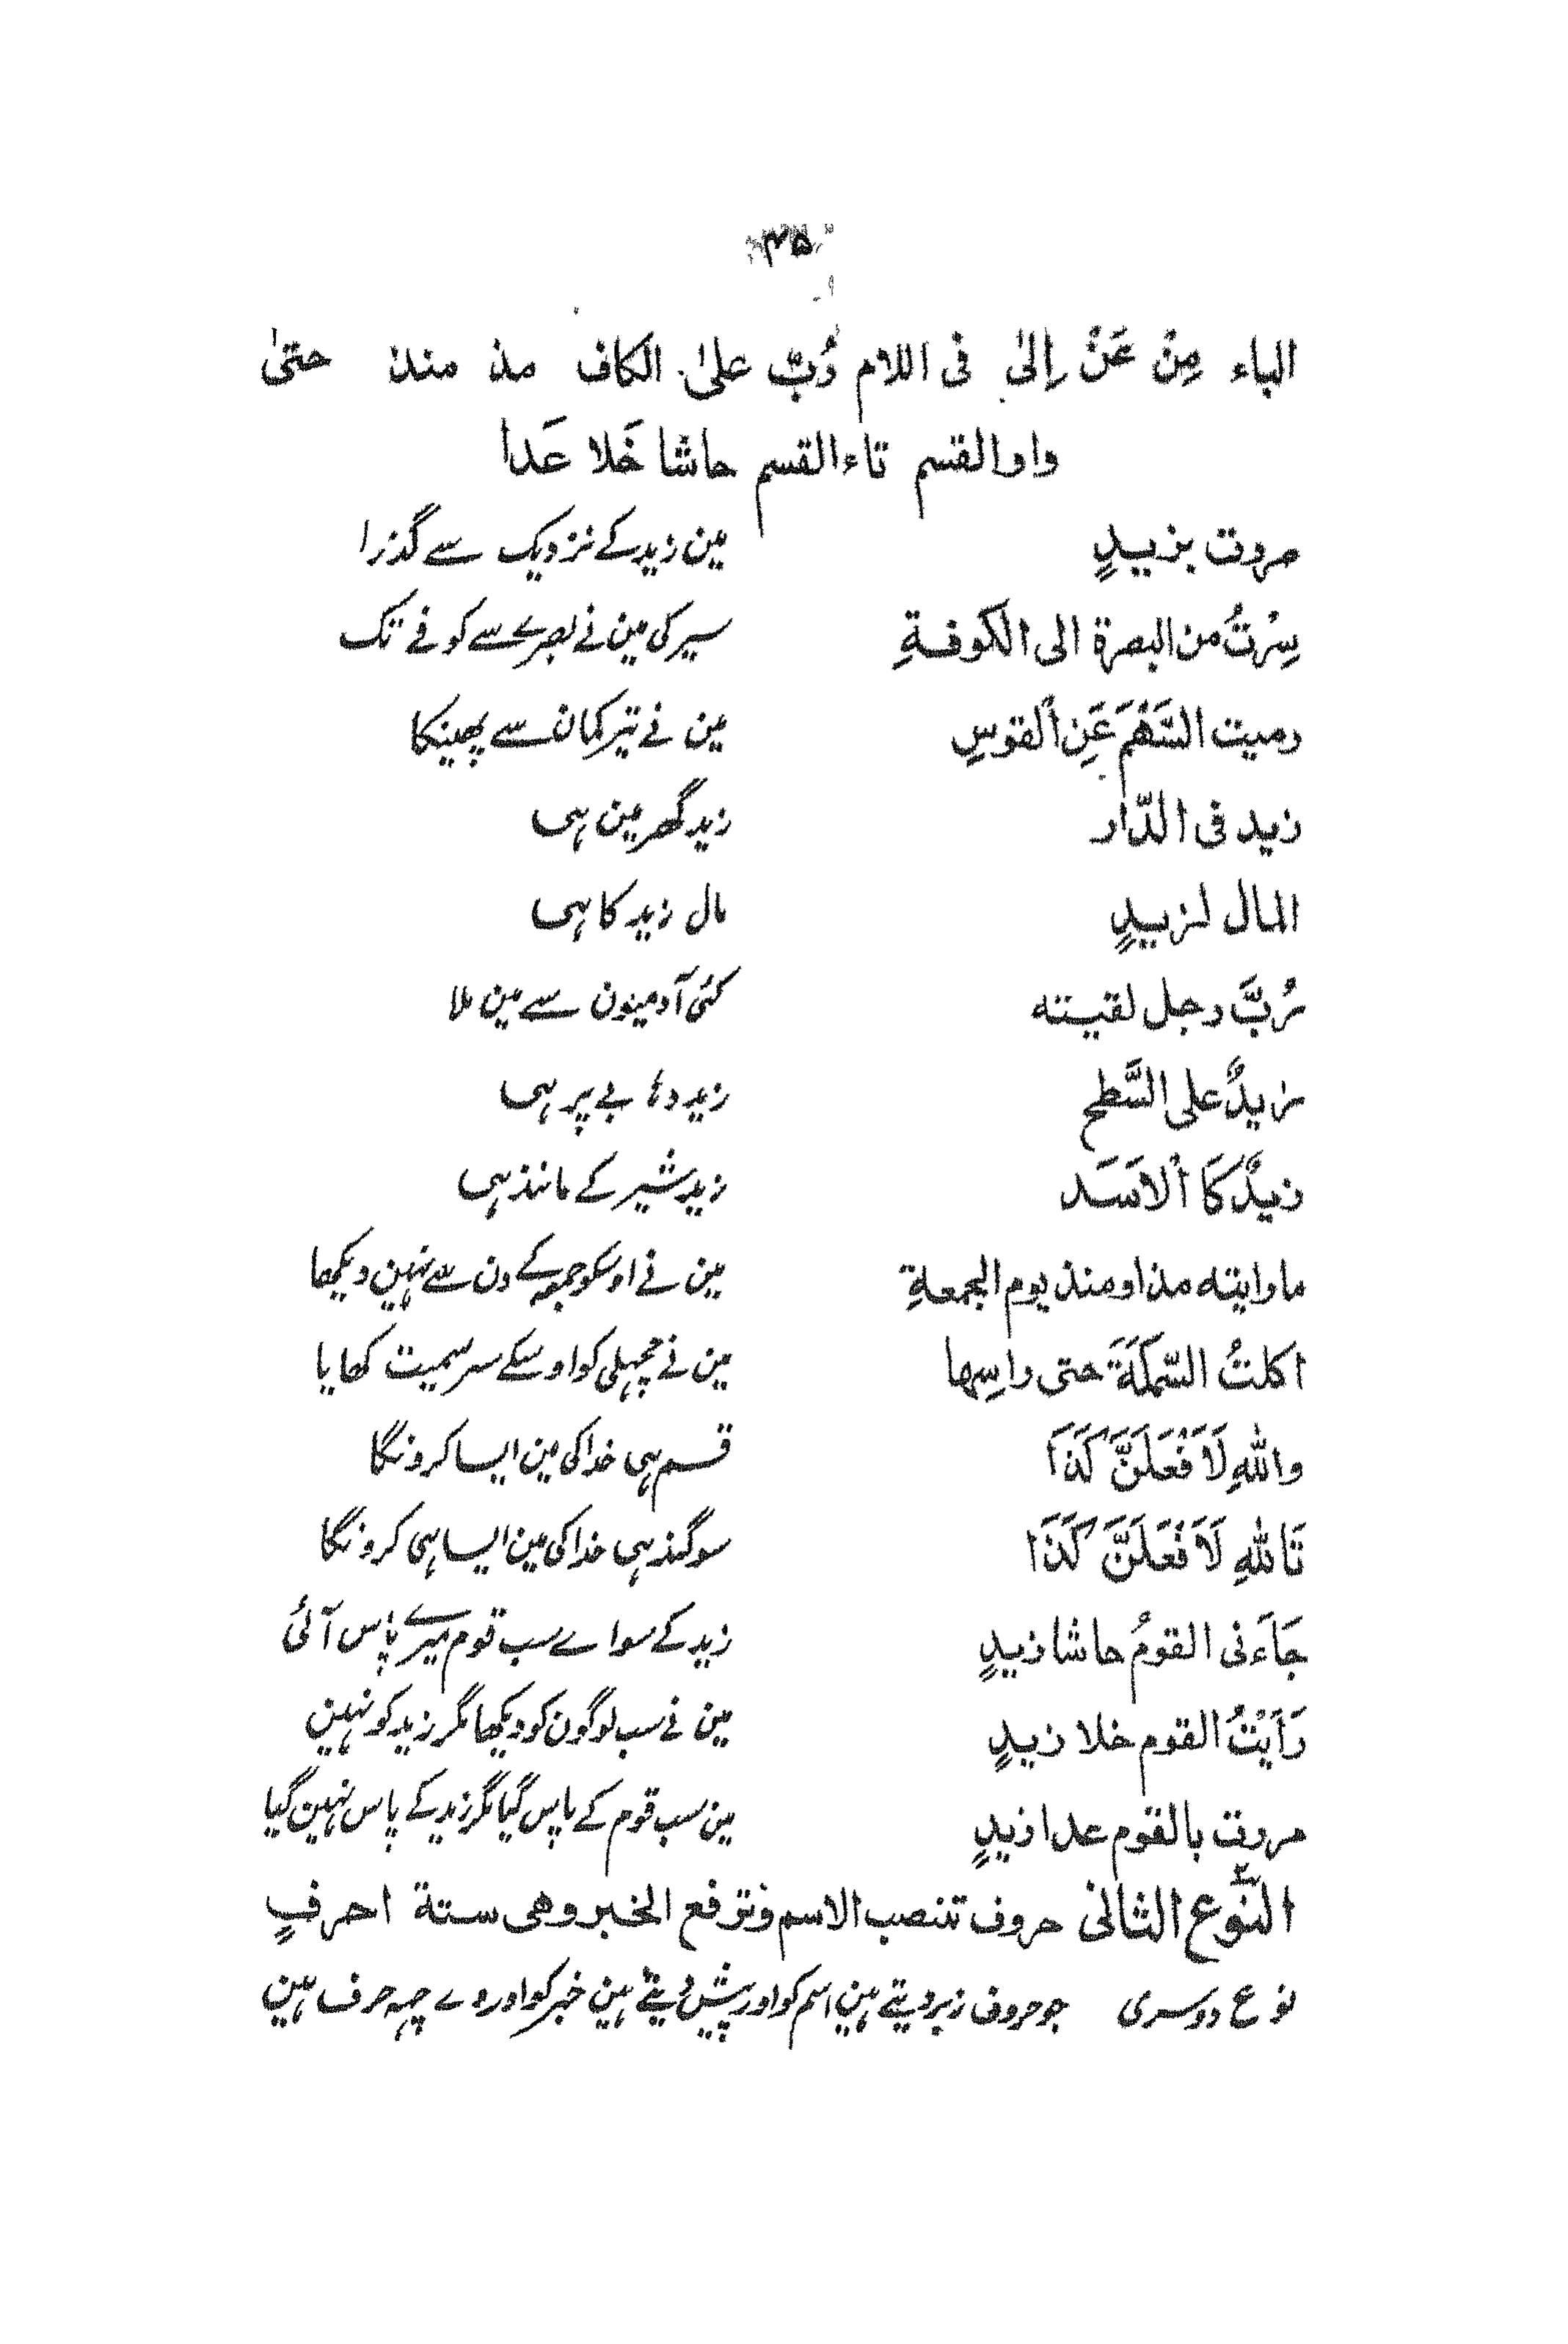 ۳۵
الباء مِنْ عَنْ اِلیٰ فی اللام رُبَّ علیٰ الکاف مذ منذ حتیٰ
واوالقسم تاءالقسم حاشا خَلا عَدا
مررت بزیدٍ مین زید کے نزدیک سے گذرا
سِرْتُ من البصرة الی الکوفةِ سیر کی مین نے بصرے سے کوفے تک
رمیت السَّهْمَ عَنِ القوسِ مین نے تیر کمان سے پھینکا
زید فی الدّار زید گھر مین ہی
المال لزیدٍ مال زید کا ہی
رُبَّ رجل لقیته کئی آدمیون سے مین ملا
زیدٌ علی السَّطح زید دہابے پر ہی
زیدٌ کَا الاَسَد زید شیر کے مانند ہی
مارایته مذ او منذ یوم الجمعةِ مین نے اوسکو جمعہ کے دن سے نہین دیکھا
اکلتُ السَّمَکَةَ حتی راسِها مین نے مچہلی کو اوسکے سر سمیت کھایا
واللّٰهِ لَاَفْعَلَنَّ کَذَا قسم ہی خدا کی مین ایسا کرونگا
تَاللّٰهِ لَاَفْعَلَنَّ کَذَا سوگند ہی خدا کی مین ایسا ہی کرونگا
جَاءَنی القومُ حاشا زیدٍ زید کے سواے سب قوم میرے پاس آئی
رَاَیْتُ القوم خلا زیدٍ مین نے سب لوگون کو دیکھا مگر زید کو نہین
مررت بالقوم عدا زیدٍ مین سب قوم کے پاس گیا مگر زید کے پاس نہین گیا
النّوع الثانی حروف تنصب الاسم وترفع الخبر وهی ستة احرفٍ
نوع دوسری جو حروف زبر دیتے ہین اسم کو اور پیش دیتے ہین خبر کو اور وے چہہ حرف ہین